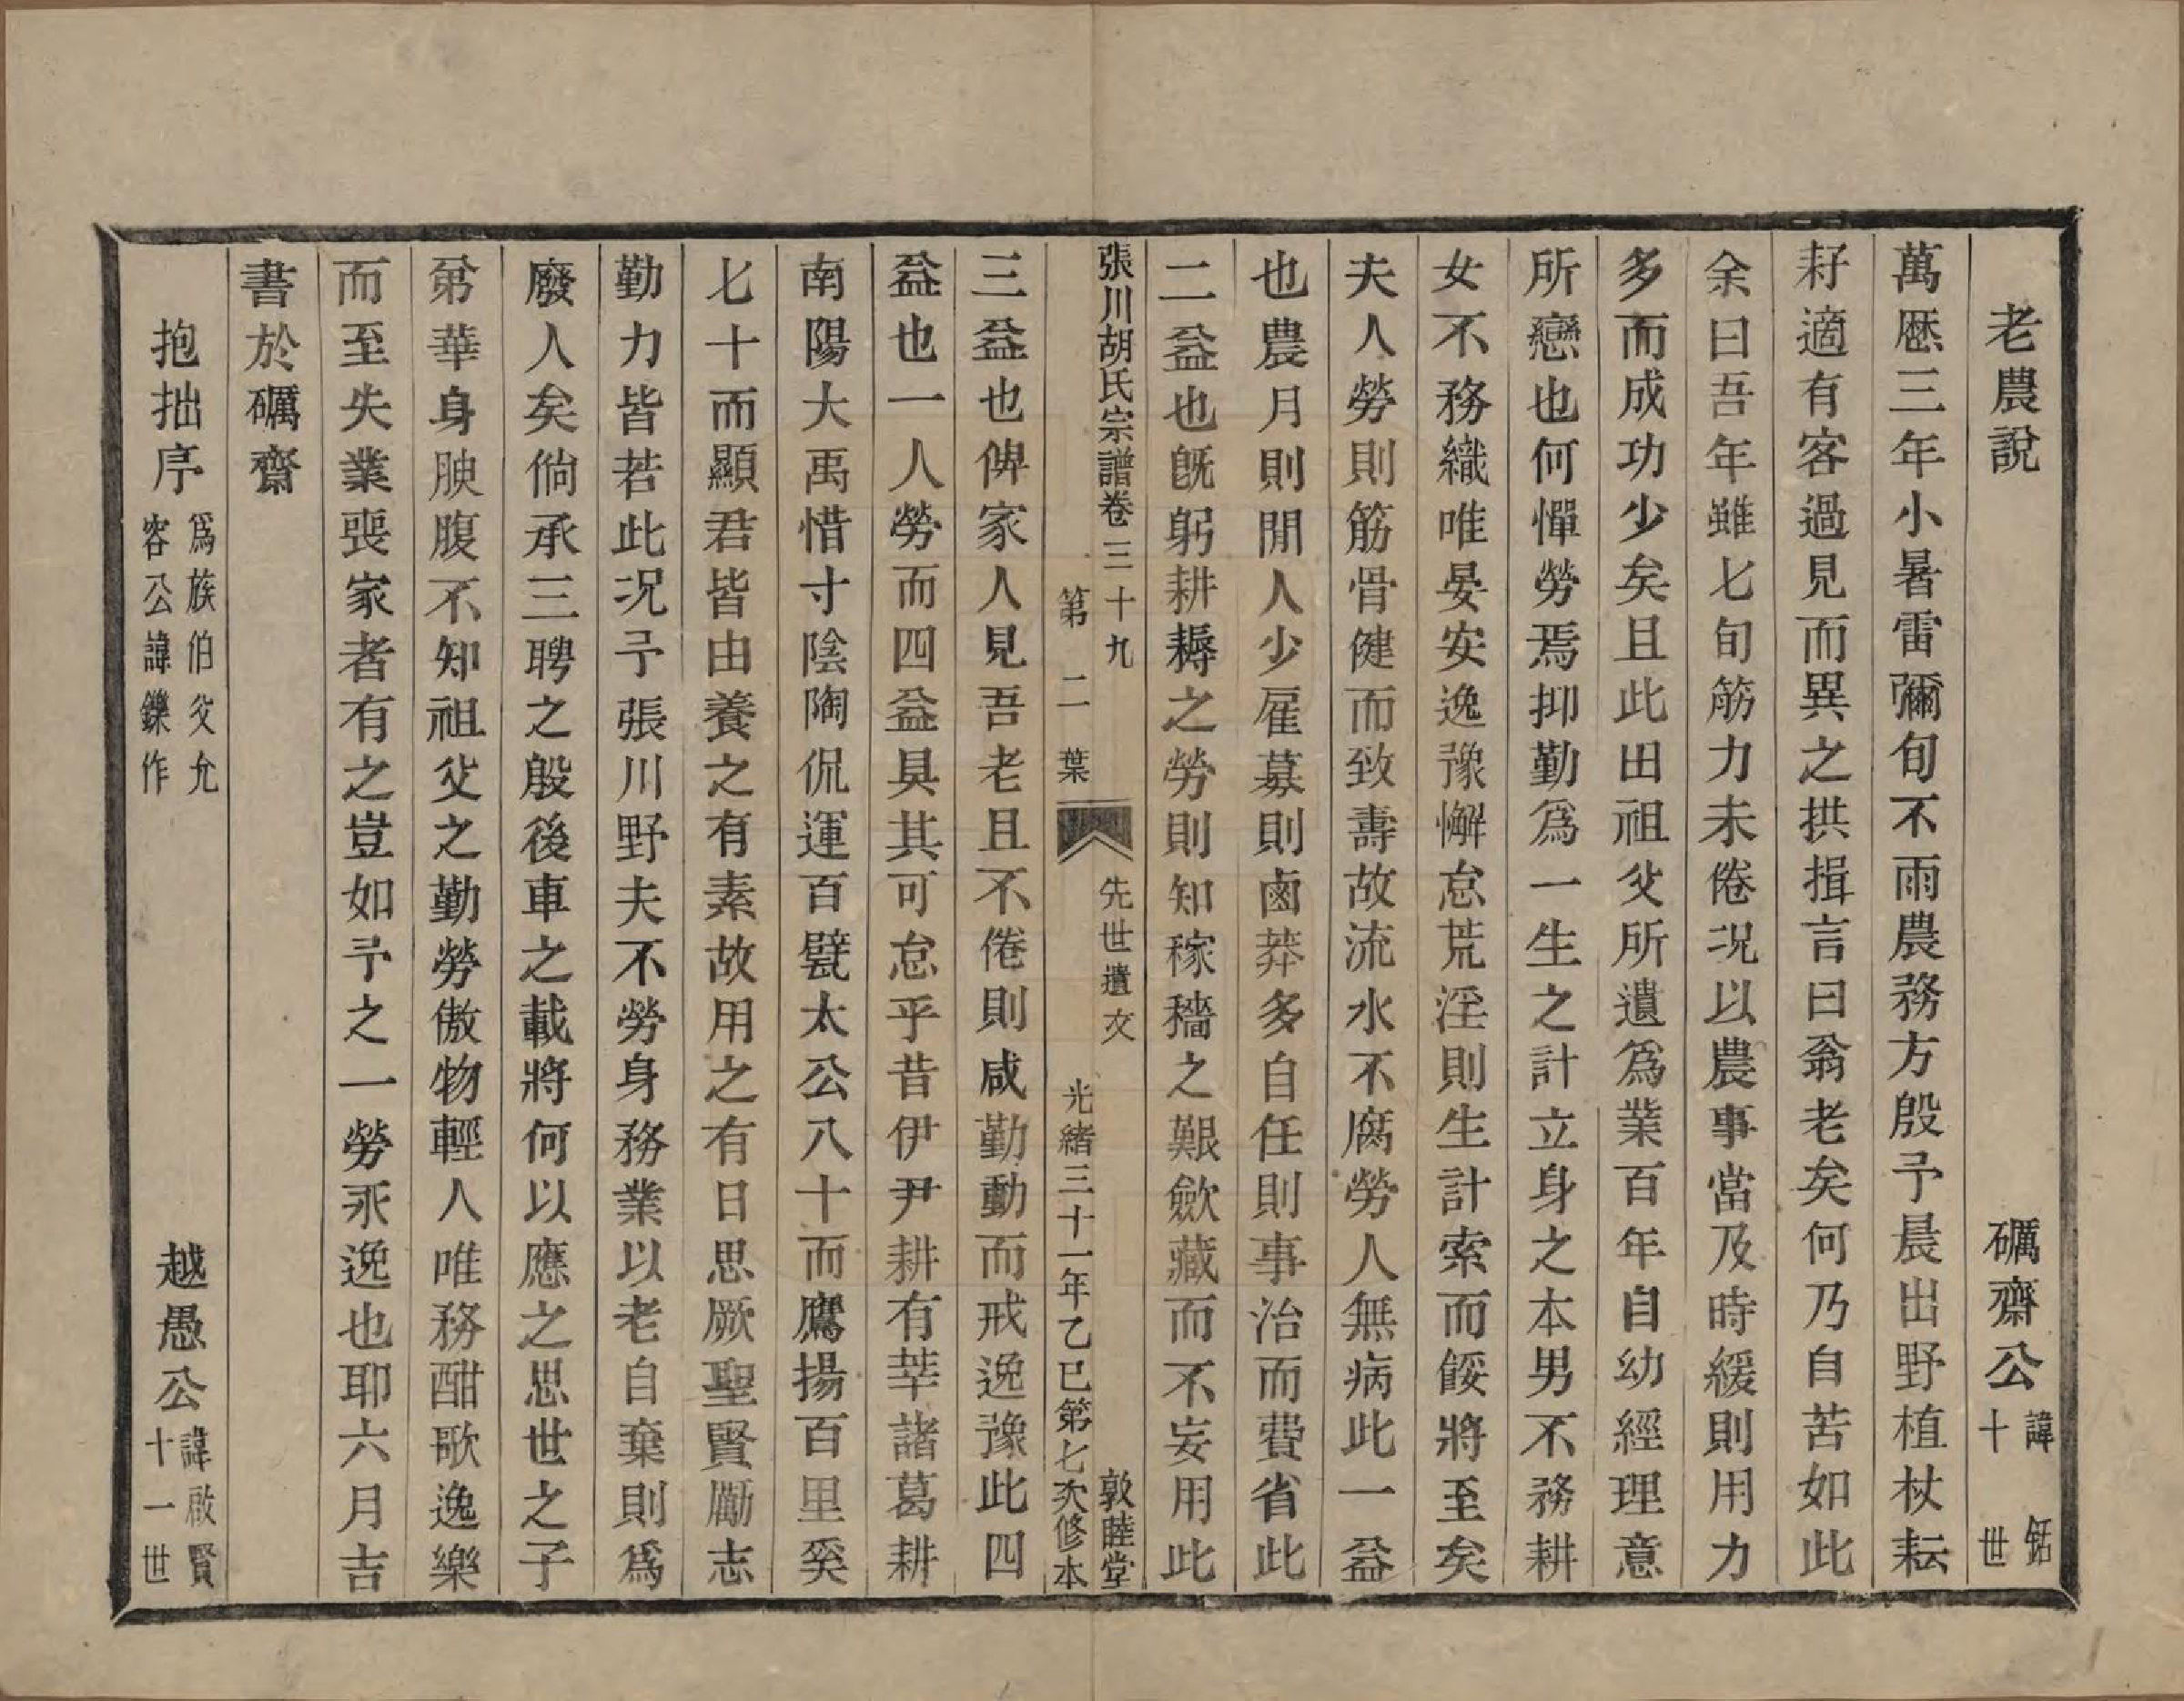 老農說　礪齋公諱銛十世
萬厯三年小暑雷彌旬不雨農務方殷予晨出野植杖耘
耔適有客過見而異之拱揖言曰翁老矣何乃自苦如此
余曰吾年雖七旬筋力未倦况以農事當及時緩則用力
多而成功少矣且此田祖父所遺爲業百年自幼經理意
所戀也何憚勞焉抑勤爲一生之計立身之本男不務耕
女不務織唯晏安逸豫懈怠荒淫則生計索而餒將至矣
夫人勞則筋骨健而致壽故流水不腐勞人無病此一益
也農月則閒人少雇募則鹵莽多自任則事治而費省此
二益也旣躬耕耨之勞則知稼穡之艱歛藏而不妄用此
張川胡氏宗譜卷三十九　先世遺文　敦睦堂
第二葉　光緒三十一年乙巳第七次修本
三益也俾家人見吾老且不倦則咸勤動而戒逸豫此四
益也一人勞而四益具其可怠乎昔伊尹耕有莘諸葛耕
南陽大禹惜寸陰陶侃運百甓太公八十而鷹揚百里奚
七十而顯君皆由養之有素故用之有日思厥聖賢勵志
勤力皆若此况予張川野夫不勞身務業以老自棄則爲
廢人矣倘承三聘之殷後車之載將何以應之思世之子
弟華身腴腹不知祖父之勤勞傲物輕人唯務酣歌逸樂
而至失業喪家者有之豈如予之一勞永逸也耶六月吉
書於礪齋
抱拙序爲族伯父允容公諱鑠作　越愚公諱啟賢十一世